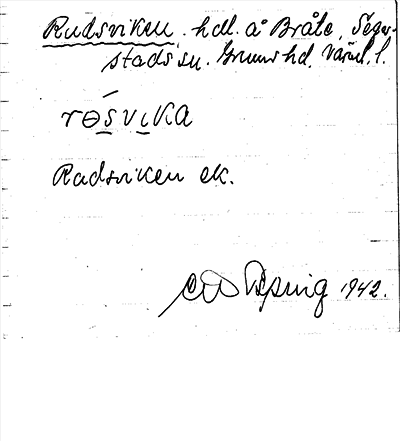 Rudsviken, hdl. å Bråte, Seger-
stads sn. Grums hd. Värml. l.
rɵ́svika
Radsviken ek.
1942.